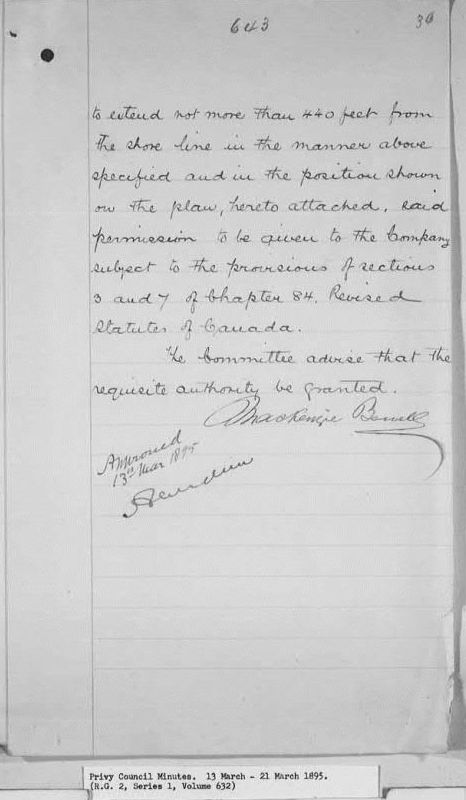 643
36
to extend not more than 440 feet from
the shore line in the manner above
specified and in the position shown
on the plan, hereto attached. Said
permission to be given to the Company
subject to the provisions of sections
3 and 7 of Chapter 84. Revised
Statutes of Canada.
The Committee advise that the
requisite authority be granted.
Mackenzie Bowell
Approved
13th Mar 1895
Aberdeen
Privy Council Minutes. 13 March - 21 March 1895.
(R.G. 2, Series 1, Volume 632)